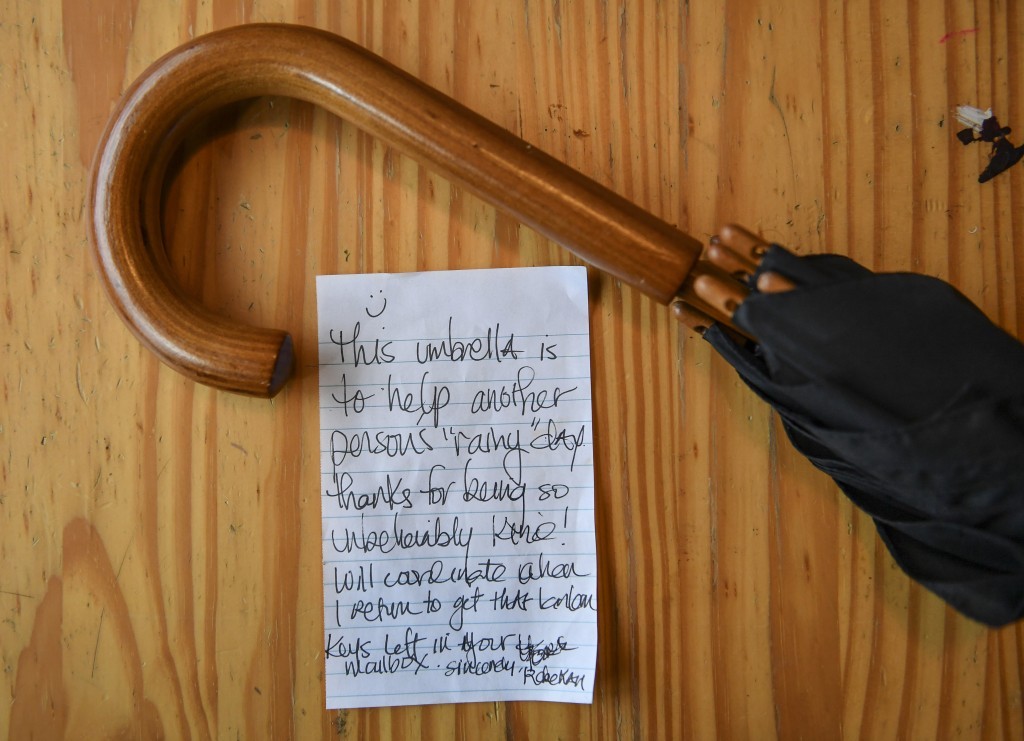 :)
This umbrella is
to help another
persons "rainy" day
thanks for being so
unbelievably kind!
Will coordinate when
I return to get that
Keys left in your
mailbox. Sincerely,